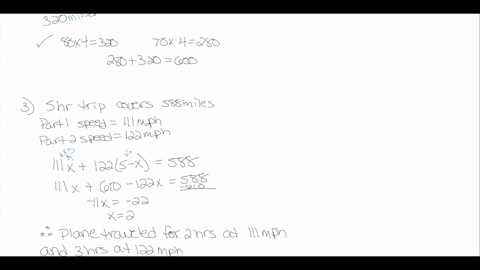 320miles
✓ 80x4=320 70x4=280
280+320=600
3) 5hr trip covers 588miles
Part 1 speed = 111mph
Part 2 speed = 122mph
111x + 122(5-x) = 588
111x + 610 - 122x = 588
-610
-11x = -22
x=2
∴ Plane traveled for 2hrs at 111mph
and 3hrs at 122mph